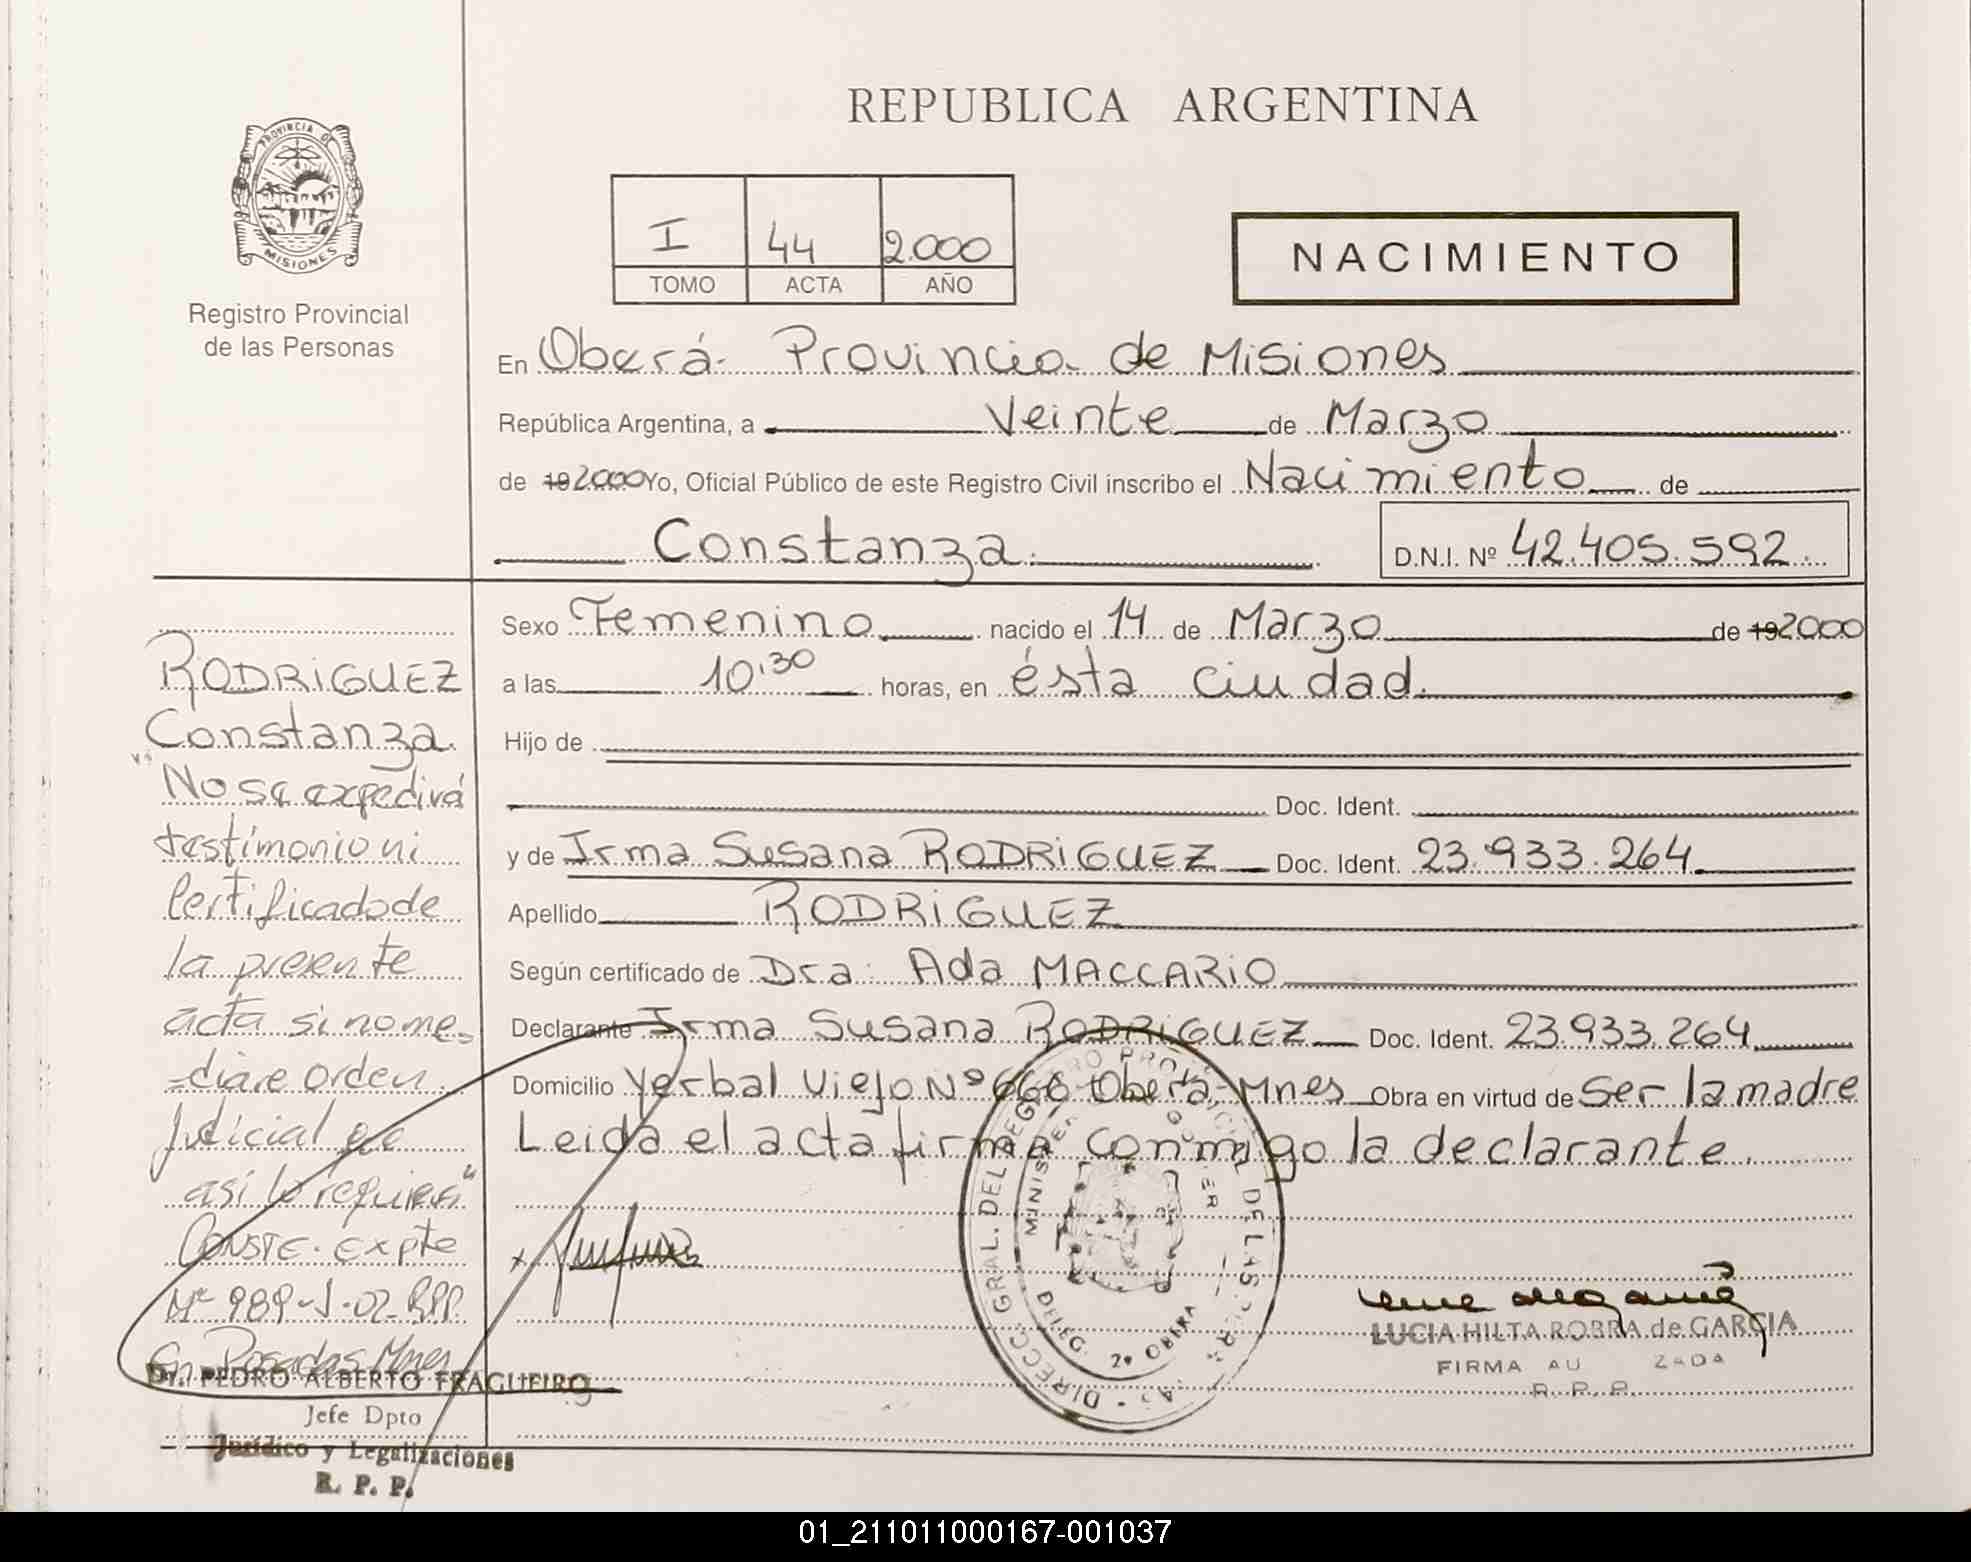 REPUBLICA ARGENTINA
PROVINCIA DE
MISIONES
Registro Provincial
de las Personas
I 44 2.000
TOMO ACTA AÑO
NACIMIENTO
En Oberá- Provincia de Misiones
República Argentina, a Veinte de Marzo
de 192000 Yo, Oficial Público de este Registro Civil inscribo el Nacimiento de
Constanza. D.N.I. Nº 42.405.592.
Sexo Femenino nacido el 14 de Marzo de 192000
a las 10:30 horas, en ésta ciudad.
Hijo de
Doc. Ident.
y de Irma Susana RODRIGUEZ Doc. Ident. 23.933.264
Apellido RODRIGUEZ
Según certificado de Dra: Ada MACCARIO
Declarante Irma Susana RODRIGUEZ Doc. Ident. 23.933.264
Domicilio Yerbal Viejo Nº 666 Oberá-Mnes Obra en virtud de Ser la madre
Leida el acta firma conmigo la declarante.
RODRIGUEZ
Constanza.
"No se expedirá
testimonio ni
Certificado de
la presente
acta si no me=
=diare orden
Judicial que
así lo requiera"
CONSTE. Expte
Nº 989-J-02-RPP.
En Posadas Mnes
Dr. PEDRO ALBERTO FRAGUEIRO
Jefe Dpto
Jurídico y Legalizaciones
R. P. P.
DIRECC. GRAL. DEL REGISTRO PROVINCIAL DE LAS PERS
DELEG. 2ª OBERA
LUCIA HILTA ROBRA de GARCIA
FIRMA AU ZADA
R. P. P.
01_211011000167-001037